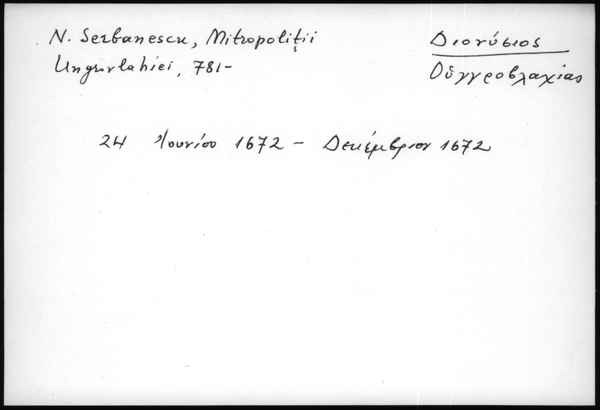 N. Serbanescu, Mitropoliţii
Ungrvlahiei, 781-
Διονύσιος
Οὐγγροβλαχίας
24 Ἰουνίου 1672 – Δεκέμβριον 1672